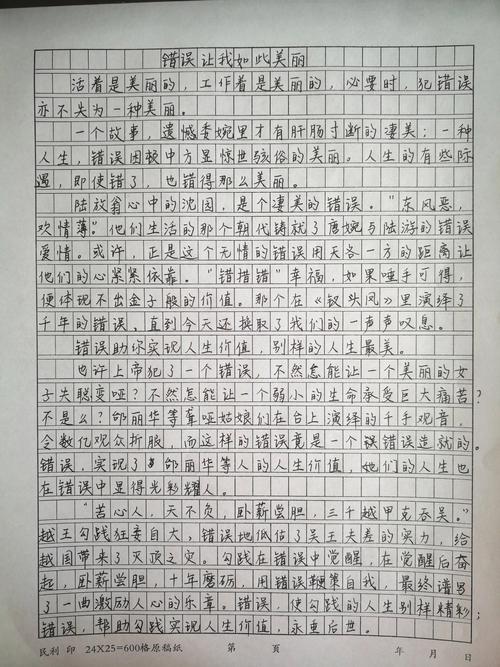 错误让我如此美丽
活着是美丽的，工作着是美丽的，必要时，犯错误
亦不失为一种美丽。
一个故事，遗憾委婉里才有肝肠寸断的凄美；一种
人生，错误困极中方显惊世骇俗的美丽。人生的有些际
遇，即使错了，也错得那么美丽。
陆放翁心中的沈园，是个凄美的错误。"东风恶，
欢情薄。"他们生活的那个朝代铸就了唐婉与陆游的错误
爱情。或许，正是这个无情的错误用天各一方的距离让
他们的心紧紧依靠。"错措错"幸福，如果唾手可得，
便体现不出金子般的价值。那个在《钗头凤》里演绎了
千年的错误、直到今天还换取了我们的一声声叹息。
错误助你实现人生价值，别样的人生最美。
也许上帝犯了一个错误，不然怎能让一个美丽的女
子失聪变哑？不然怎能让一个弱小的生命承受巨大痛苦？
不是么？邰丽华等聋哑姑娘们在台上演绎的千手观音，
令数亿观众折服，而这样的错误竟是一个错误造就的。
错误，实现了邰丽华等人的人生价值，她们的人生也
在错误中显得光彩耀人。
"苦心人，天不负，卧薪尝胆，三千越甲克吞吴。"
越王勾践狂妄自大，错误地低估了吴王夫差的实力，给
越国带来了灭顶之灾。勾践在错误中觉醒，在觉醒后奋
起，卧薪尝胆，十年磨砺，用错误鞭策自我，最终谱写
了一曲激励人心的乐章。错误，使勾践的人生别样精彩
错误，帮助勾践实现人生价值，永垂后世。
民利 印 24X25=600格原稿纸 第 頁 年 月 日